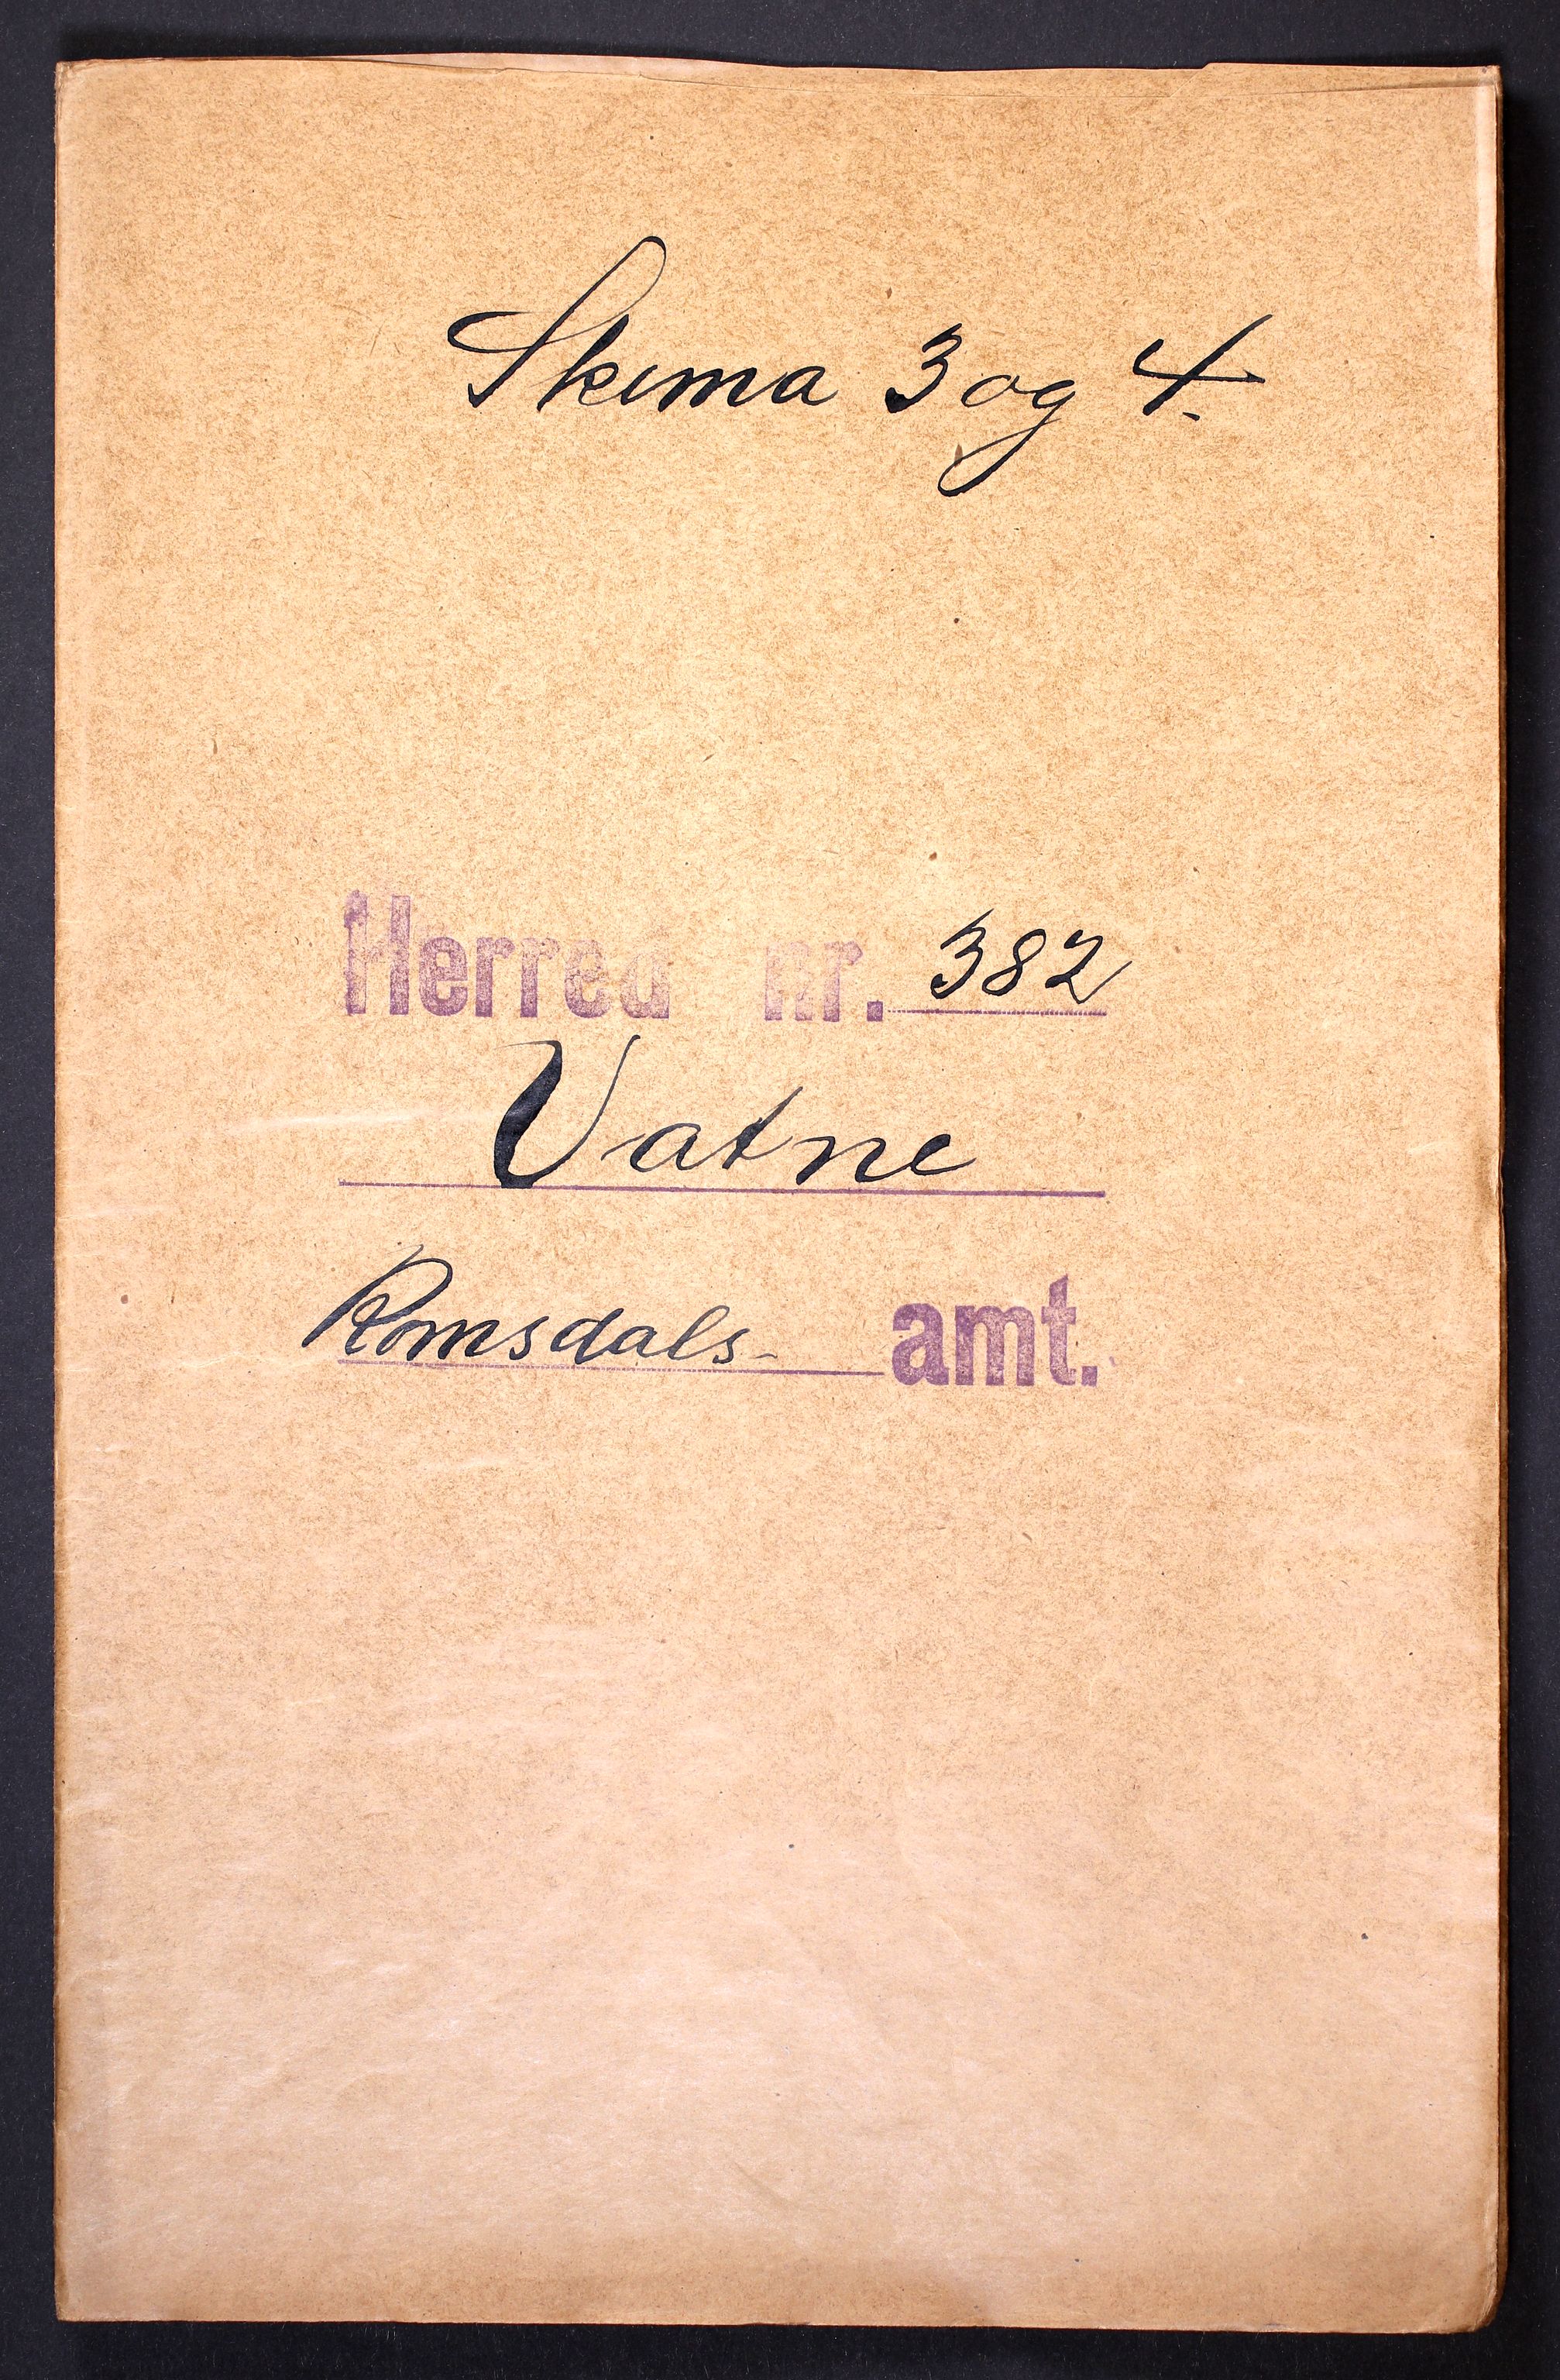 Skema 3 og 4.
Herred nr. 382
Vatne
Romsdals- amt.